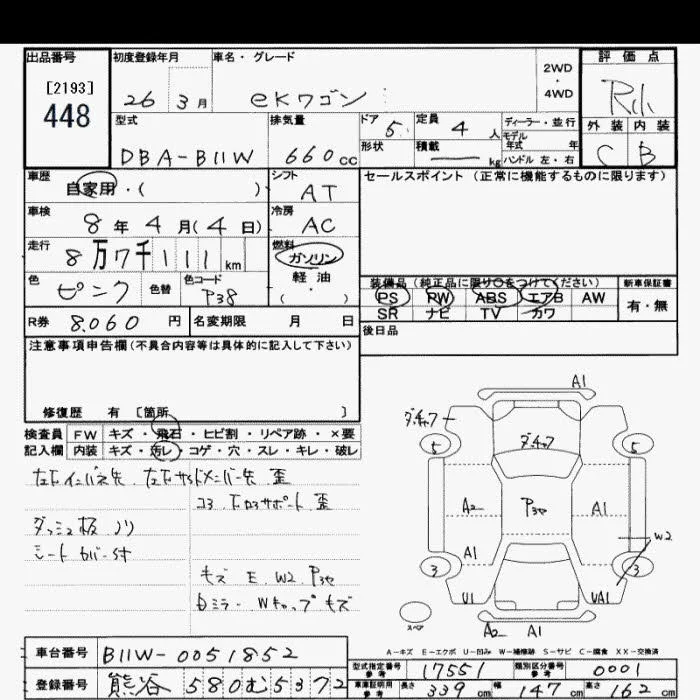 出品番号
[2193]
448
初度登録年月
26 3月
車名・グレード
eKワゴン
2WD
・
4WD
評価点
外装 内装
C B
型式
DBA-B11W
排気量
660cc
ドア
5
形状
定員
4人
積載
kg
ディーラー・並行
モデル
年式 年
ハンドル 左・右
車歴
自家用・( )
シフト
AT
車検
8年4月(4日)
冷房
AC
走行
8万7千111km
燃料
ガソリン
軽油
・
( )
色
ピンク
色替
色コード
P38
R券 8.060円
名変期限 月 日
セールスポイント(正常に機能するものに限ります)
装備品(純正品に限り○をつけてください)
PS PW ABS エアB AW
SR ナビ TV カワ
新車保証書
有・無
後日品
注意事項申告欄(不具合内容等は具体的に記入して下さい)
修復歴 有 [箇所 ]
検査員 FW キズ・飛石・ヒビ割・リペア跡・×要
記入欄 内装 キズ・汚レ・コゲ・穴・スレ・キレ・破レ
左下インパネ先 左下サイドメンバー先 歪
コア下ロアサポート 歪
ダッシュ板 ノリ
シートカバー付
キズ E W2 P3ヶ
ミラー Wキャップキズ
A1
ダ.チャフ
ダ.チャフ
5 5
A2 P3ヶ A1
A1 W2
3 3
U1 UA1
スペア
A2 A1
A-キズ E-エクボ U-凹み W-補修跡 S-サビ C-腐食 XX-交換済
車台番号 B11W-0051852
登録番号 熊谷 580む5372
型式指定番号
参考
17551
類別区分番号
参考
0001
車庫証明用
参考
長さ 339cm 幅 147cm 高さ 162cm